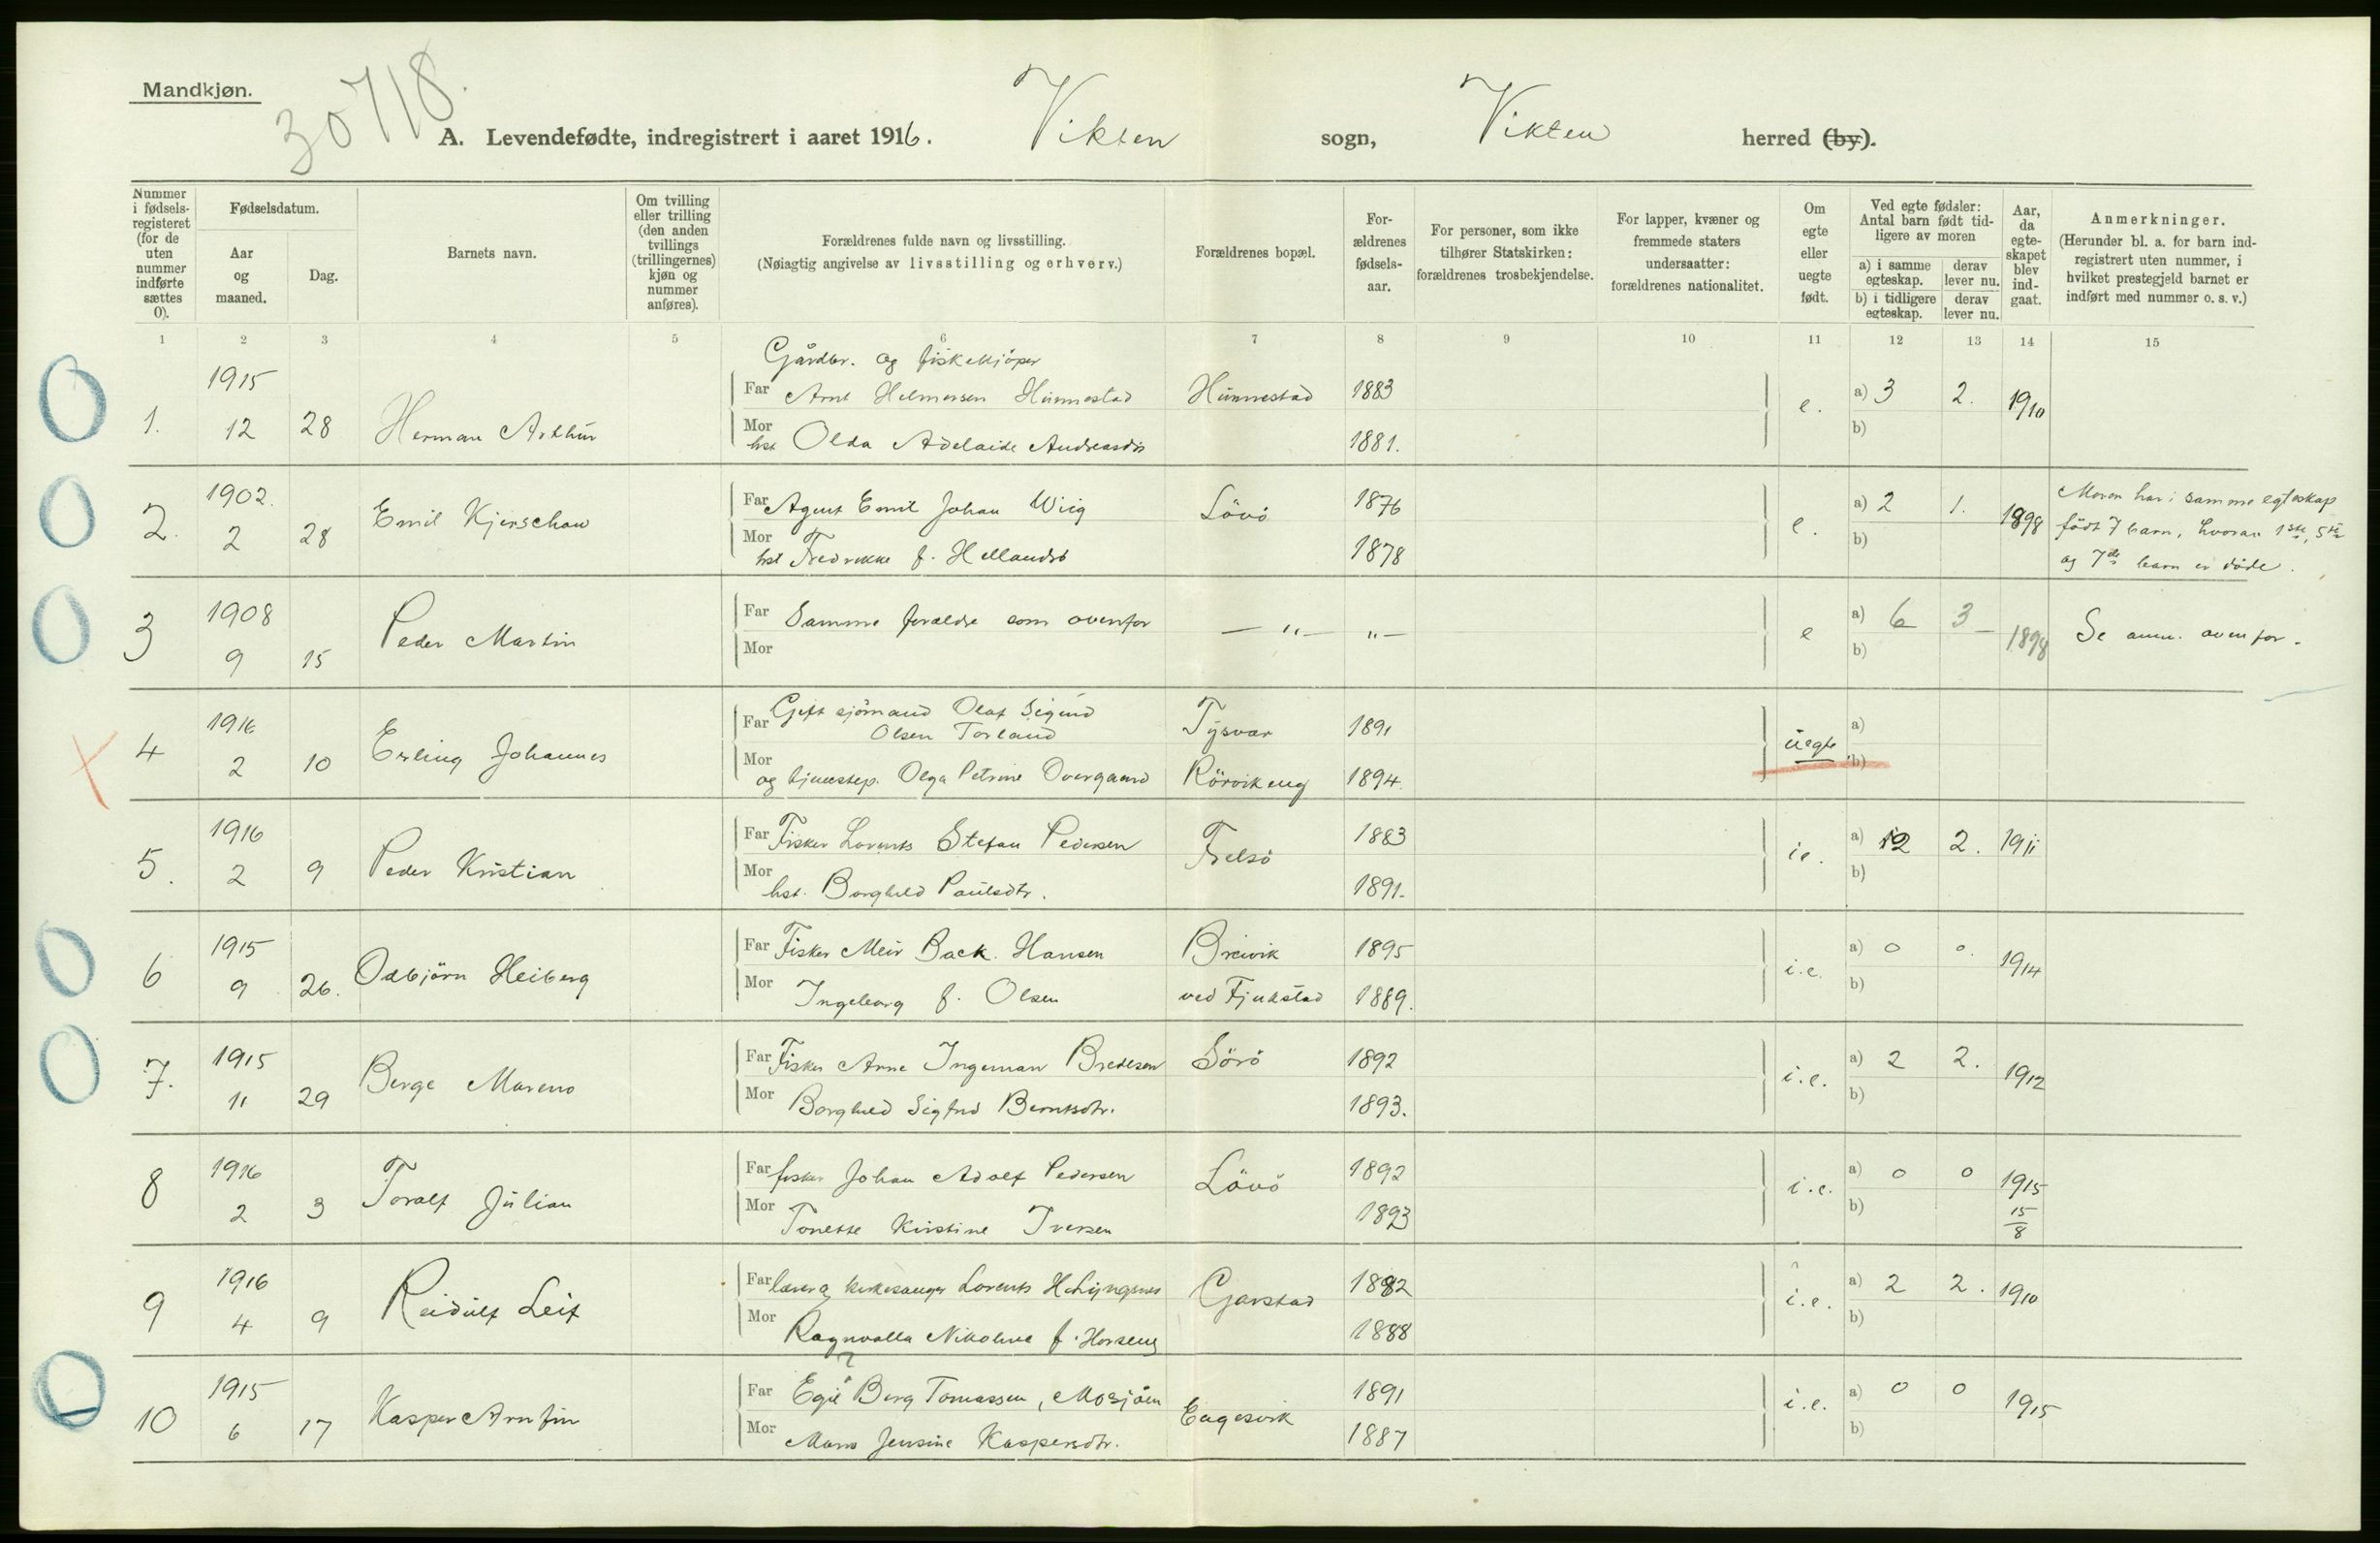 Mandkjøn.
30718.
A. Levendefødte, indregistrert i aaret 1916. Vikten sogn, Vikten herred (by).
Nummer i fødselsregisteret (for de uten nummer indførte sættes 0).
Fødselsdatum.
Aar og maaned.
Dag.
Barnets navn.
Om tvilling eller trilling (den anden tvillings (trillingernes) kjøn og nummer anføres).
Forældrenes fulde navn og livsstilling.
(Nøiagtig angivelse av livsstilling og erhverv.)
Forældrenes bopæl.
Forældrenes fødselsaar.
For personer, som ikke tilhører Statskirken: forældrenes trosbekjendelse.
For lapper, kvæner og fremmede staters undersaatter: forældrenes nationalitet.
Om egte eller uegte født.
Ved egte fødsler: Antal barn født tidligere av moren
a) i samme egteskap. derav lever nu.
b) i tidligere egteskap. derav lever nu.
Aar, da egteskapet blev indgaat.
Anmerkninger.
(Herunder bl. a. for barn indregistrert uten nummer, i hvilket prestegjeld barnet er indført med nummer o. s. v.)
1 2 3 4 5 6 7 8 9 10 11 12 13 14 15
Gårdbr. og fiskekjöper
1915 Far Arnt Helmersen Hunnestad Hunnestad 1883 a) 3 2. 1910
1. 12 28 Herman Arthur Mor hst Olda Adelaide Andreasdtr 1881. e. b)
1902. Far Agent Emil Johan Wiig Lövö 1876 a) 2 1. 1898 Moren har i samme egteskap
2. 2 28 Emil Kjerschow Mor hst Fredrikke f. Hellandsö 1878 e. b) født 7 barn, hvorav 1ste, 5te
og 7de barn er döde.
1908 Far Samme forældre som ovenfor — " — " — a) 6 3 1898 Se anm. ovenfor.
3 9 15 Peder Martin Mor e b)
1916 Far Gift sjömand Olaf Sigurd
Olsen Torland Tysvær 1891 a)
4 2 10 Erling Johannes Mor og tjenestep. Olga Petrine Overgaard Rörvikeng 1894. uegte b)
1916 Far Fisker Lorents Stefan Pedersen Frelsö 1883 a) 2 2. 1911
5. 2 9 Peder Kristian Mor hst. Borghild Paulsdtr. 1891. ie. b)
1915 Far Fisker Meir Back. Hansen Breivik 1895 a) 0 0. 1914
6 9 26. Odbjörn Heiberg Mor Ingeborg f. Olsen ved Fjukstad 1889. i.e. b)
1915 Far Fisker Arne Ingeman Bredesen Sörö 1892 a) 2 2. 1912
7. 11 29 Berge Mareno Mor Borghild Sigfrid Berntsdtr. 1893. i.e. b)
1916 Far fisker Johan Adolf Pedersen Lövö 1892 a) 0 0 1915
8 2 3 Toralf Julian Mor Tonette Kirstine Iversen 1893 i.e. b) 15/8
1916 Far lærer og kirkesanger Lorents Garstad 1882 a) 2 2. 1910
9 4 9 Reidulf Leif Mor Ragnvalla Nikoline f. Horseng 1888 i.e. b)
1915 Far Egil Berg Tomassen, Mosjöen Engesvik 1891 a) 0 0 1915
10 6 17 Kasper Arnfin Mor Jensine Kaspersdtr. 1887 i.e. b)